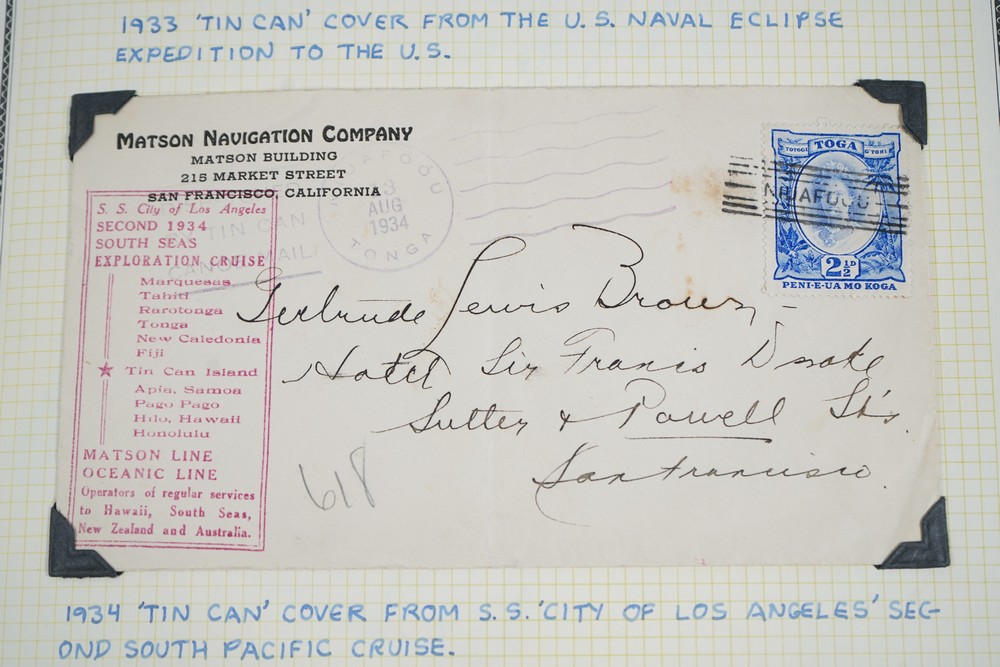 1933 'TIN CAN' COVER FROM THE U.S. NAVAL ECLIPSE
EXPEDITION TO THE U.S.
MATSON NAVIGATION COMPANY
MATSON BUILDING
215 MARKET STREET
SAN FRANCISCO, CALIFORNIA
S. S. City of Los Angeles
SECOND 1934
SOUTH SEAS
EXPLORATION CRUISE
Marquesas
Tahiti
Rarotonga
Tonga
New Caledonia
Fiji
Tin Can Island
Apia, Samoa
Pago Pago
Hilo, Hawaii
Honolulu
MATSON LINE
OCEANIC LINE
Operators of regular services
to Hawaii, South Seas,
New Zealand and Australia.
TIN CAN
CANOE MAIL
3
AUG
1934
TONGA
TOGA
2½D
PENI·E·UA MO KOGA
Gertrude Lewis Brown,
Hotel Sir Francis Drake
Sutter & Powell St's.
San Francisco.
618
1934 'TIN CAN' COVER FROM S.S. 'CITY OF LOS ANGELES' SEC-
OND SOUTH PACIFIC CRUISE.